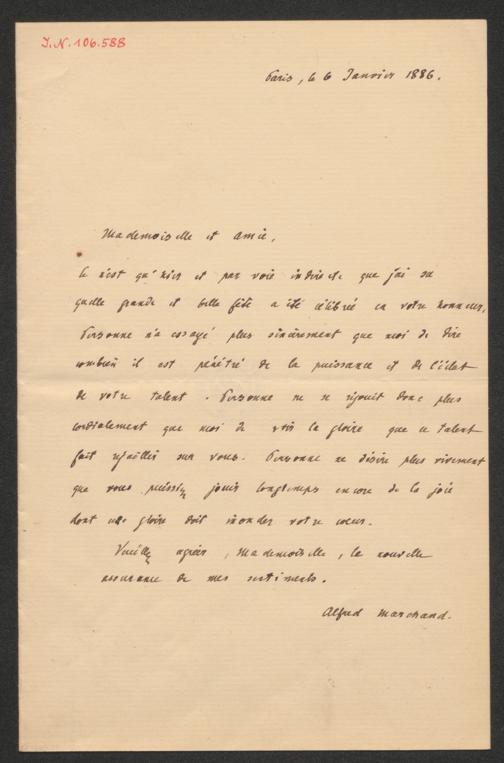 I.N. 106.588
Paris, le 6 Janvier 1886.
Mademoiselle et amie,
Ce n'est qu'hier et par voie indirecte que j'ai su
quelle grande et belle fête a été célébrée en votre honneur.
Personne n'a essayé plus sincèrement que moi de dire
combien il est pénétré de la puissance et de l'éclat
de votre talent. Personne ne se réjouit donc plus
cordialement que moi de voir la gloire que ce talent
fait rejaillir sur vous. Personne ne désire plus vivement
que vous puissiez jouir longtemps encore de la joie
dont cette gloire doit inonder votre cœur.
Veuillez agréer, Mademoiselle, la nouvelle
assurance de mes sentiments.
Alfred Marchand.